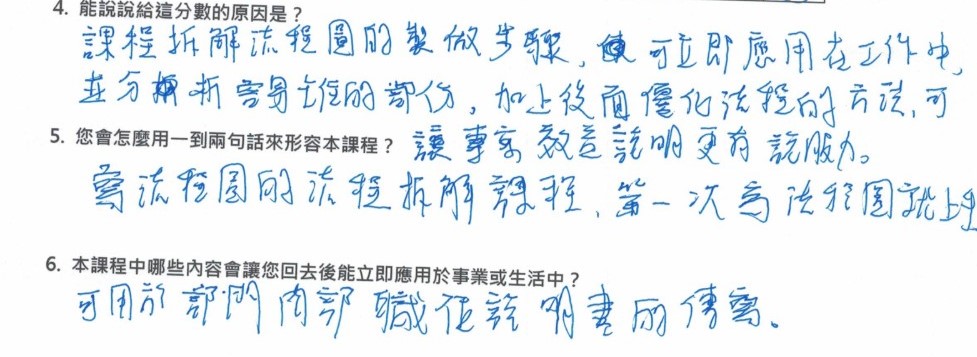 4. 能說說給這分數的原因是？
課程拆解流程圖的製做步驟，可立即應用在工作中，
並分析容易卡住的部份，加上後面優化流程的方法，可
5. 您會怎麼用一到兩句話來形容本課程？ 讓專案效益說明更有說服力。
寫流程圖的流程拆解課程，第一次寫流程圖就上手
6. 本課程中哪些內容會讓您回去後能立即應用於事業或生活中？
可用於部門內部職作說明書的傳寫。